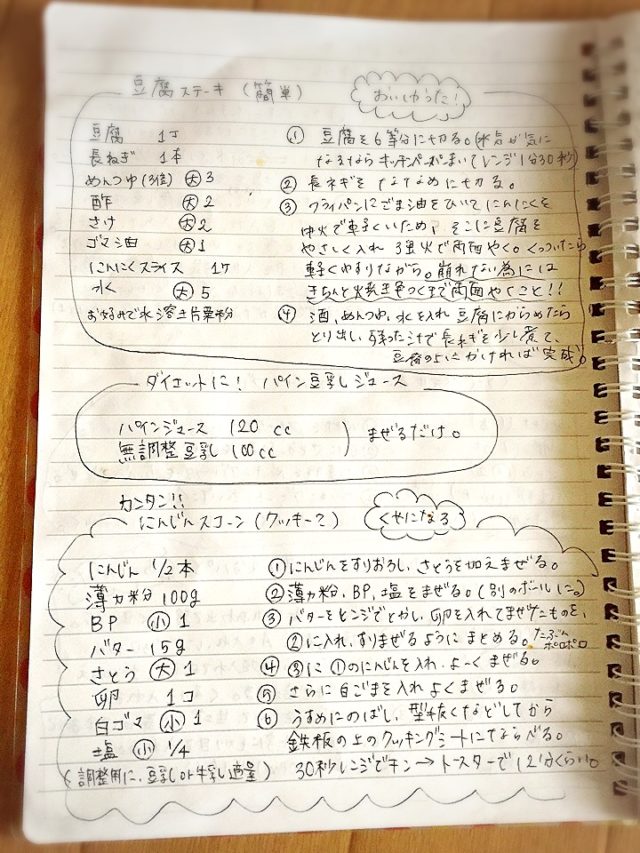 豆腐ステーキ (簡単)
おいしかった!
豆腐 1丁
長ねぎ 1本
めんつゆ(3倍) 大3
酢 大2
さけ 大2
ゴマ油 大1
にんにくスライス 1ケ
水 大5
お好みで水溶き片栗粉
① 豆腐を6等分に切る。(水気が気に
なるならキッチンペーパーまいてレンジ1分30秒)
② 長ネギをななめに切る。
③ フライパンにごま油をひいてにんにくを
中火で軽くいため、そこに豆腐を
やさしく入れ 強火で両面やく。くっついたら
軽くゆすりながら。崩れない為には
きちんと焼き色つくまで両面やくこと!!
④ 酒、めんつゆ、水を入れ 豆腐にからめたら
とり出し、残った汁で長ねぎを少し煮て、
豆腐の上にかければ完成。
ダイエットに! パイン豆乳ジュース
パインジュース 120cc
無調整豆乳 100cc
まぜるだけ。
カンタン!!
にんじんスコーン (クッキー?)
くせになる
にんじん 1/2本
薄力粉 100g
BP 小1
バター 15g
さとう 大1
卵 1コ
白ゴマ 小1
塩 小1/4
(調整用に、豆乳or牛乳適量)
① にんじんをすりおろし、さとうを加えまぜる。
② 薄力粉、BP、塩をまぜる。(別のボールに。)
③ バターをレンジでとかし、卵を入れてまぜたものを、
②に入れ、すりまぜるようにまとめる。
ポロポロ
④ ③に①のにんじんを入れ、よーくまぜる。
⑤ さらに白ごまを入れよくまぜる。
⑥ うすめにのばし、型抜くなどしてから
鉄板の上のクッキングシートにてならべる。
30秒レンジでチン→トースターで12分くらい。